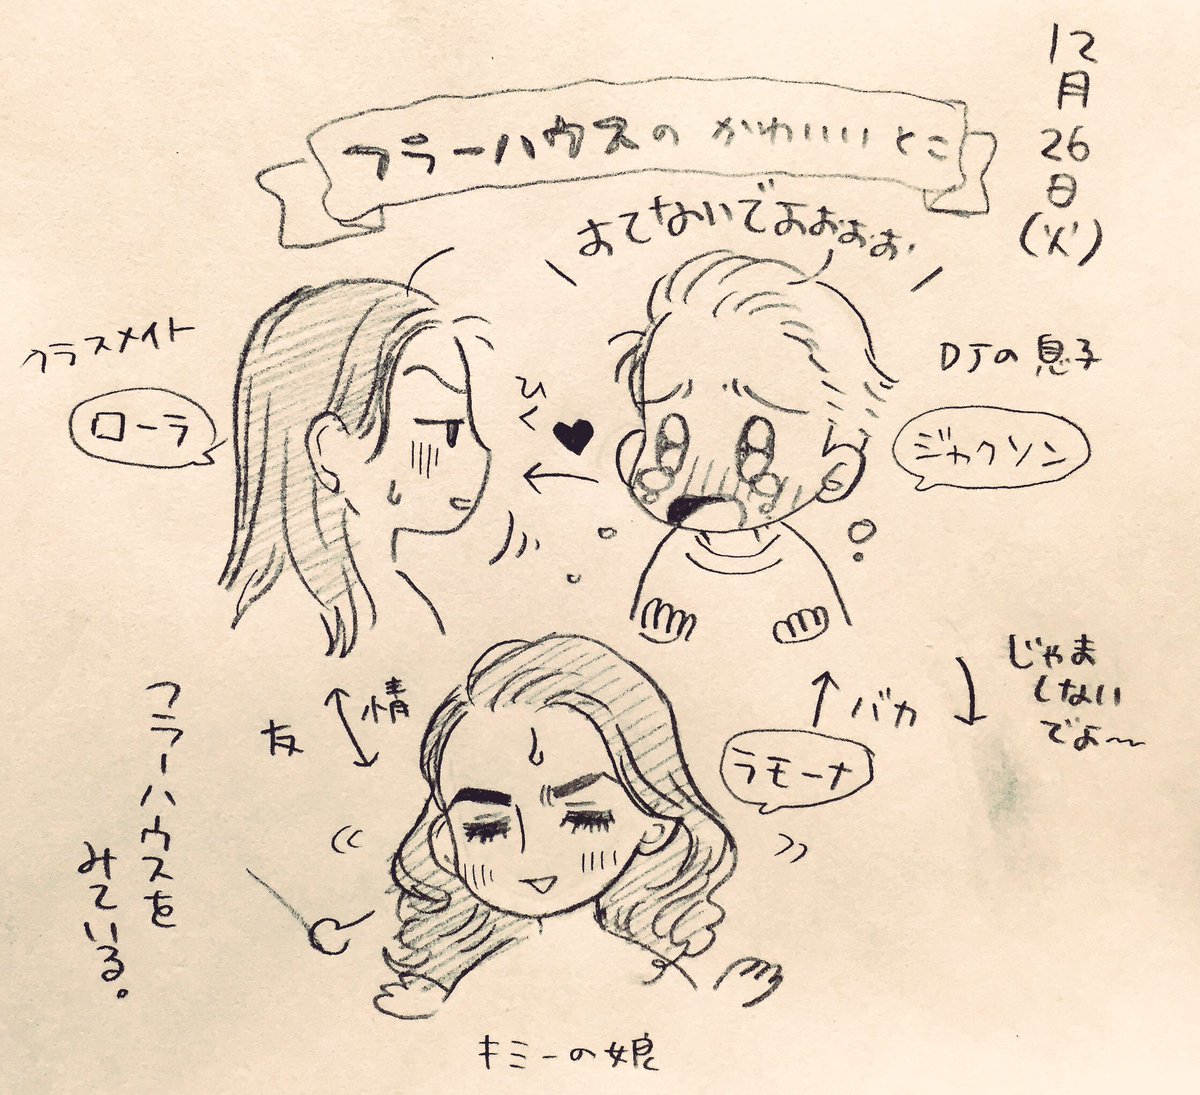 12月26日(火)
フラーハウスのかわいいとこ
すてないでよおぉぉぉ
クラスメイト
ローラ
ひく
DJの息子
ジャクソン
友情
バカ
じゃま
しない
でよ〜
ラモーナ
フラーハウスを
みている。
キミーの娘